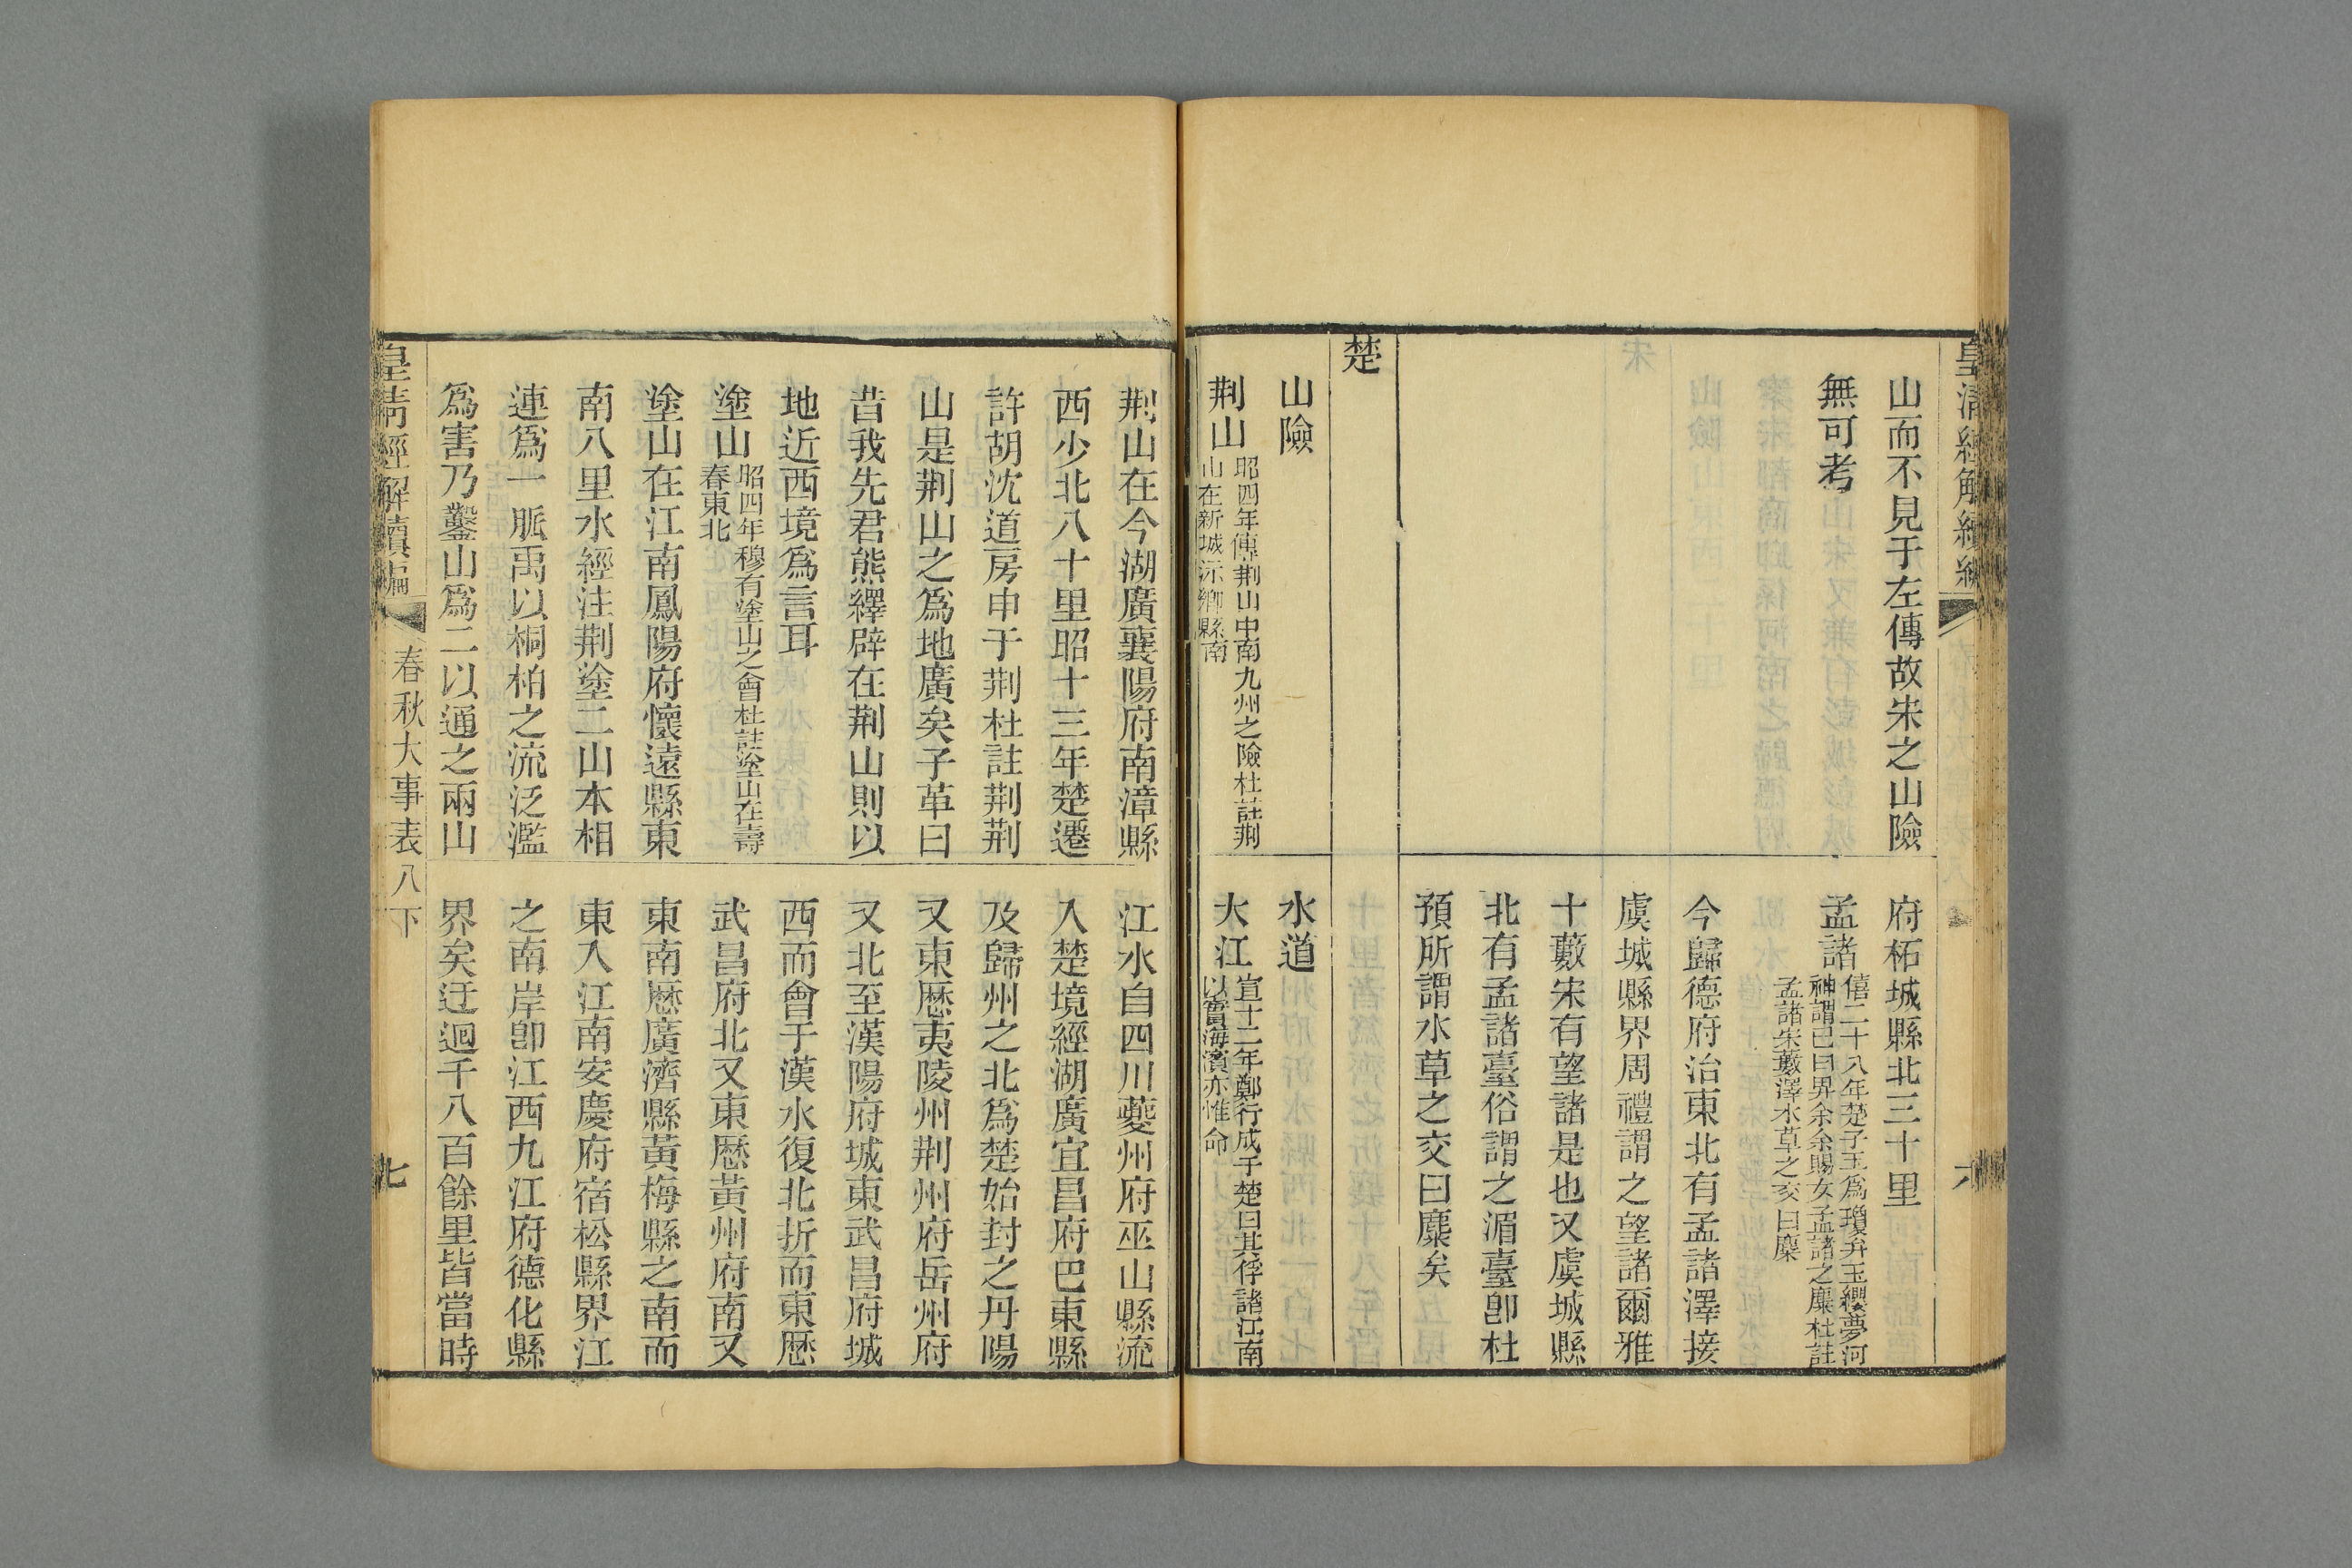 皇清經解續編
山而不見于左傳故宋之山險
無可考
府柘城縣北三十里
孟諸
僖二十八年楚子玉爲瓊弁玉纓夢河
神謂己曰畀余余賜女孟諸之麋杜註
孟諸宋藪澤水草之交曰麋
今歸德府治東北有孟諸澤接
虞城縣界周禮謂之望諸爾雅
十藪宋有望諸是也又虞城縣
北有孟諸臺俗謂之湄臺卽杜
預所謂水草之交曰麋矣
六
楚
山險
荆山
昭四年傳荆山中南九州之險杜註荆
山在新城沶鄉縣南
水道
大江
宣十二年鄭行成于楚曰其俘諸江南
以實海濱亦惟命
荆山在今湖廣襄陽府南漳縣
西少北八十里昭十三年楚遷
許胡沈道房申于荆杜註荆荆
山是荆山之爲地廣矣子革曰
昔我先君熊繹辟在荆山則以
地近西境爲言耳
塗山
昭四年穆有塗山之會杜註塗山在壽
春東北
塗山在江南鳳陽府懷遠縣東
南八里水經注荆塗二山本相
連爲一脈禹以桐柏之流泛濫
爲害乃鑿山爲二以通之兩山
江水自四川夔州府巫山縣流
入楚境經湖廣宜昌府巴東縣
及歸州之北爲楚始封之丹陽
又東歷夷陵州荆州府岳州府
又北至漢陽府城東武昌府城
西而會于漢水復北折而東歷
武昌府北又東歷黃州府南又
東南歷廣濟縣黃梅縣之南而
東入江南安慶府宿松縣界江
之南岸卽江西九江府德化縣
界矣迂迴千八百餘里皆當時
皇清經解續編
春秋大事表八下
七